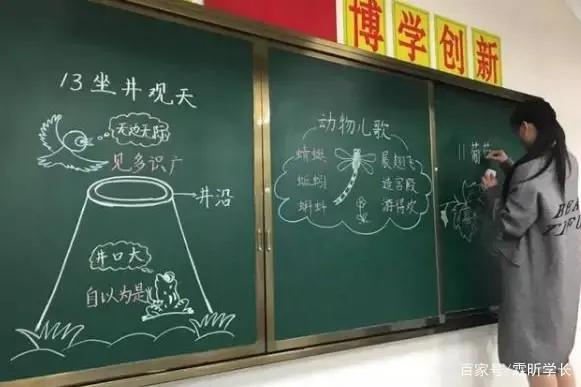 博学创新
13坐井观天
无边无际
见多识广
井沿
井口大
自以为是
动物儿歌
蜻蜓 展翅飞
蚯蚓 造宫殿
蝌蚪 游得欢
11葡
百家号/霖昕学长